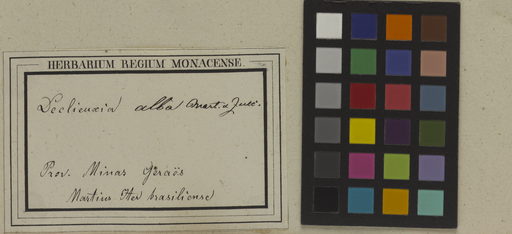 HERBARIUM REGIUM MONACENSE.
Declieuxia alba Mart. et Zucc.
Prov. Minas Geraës
Martius Iter brasiliense